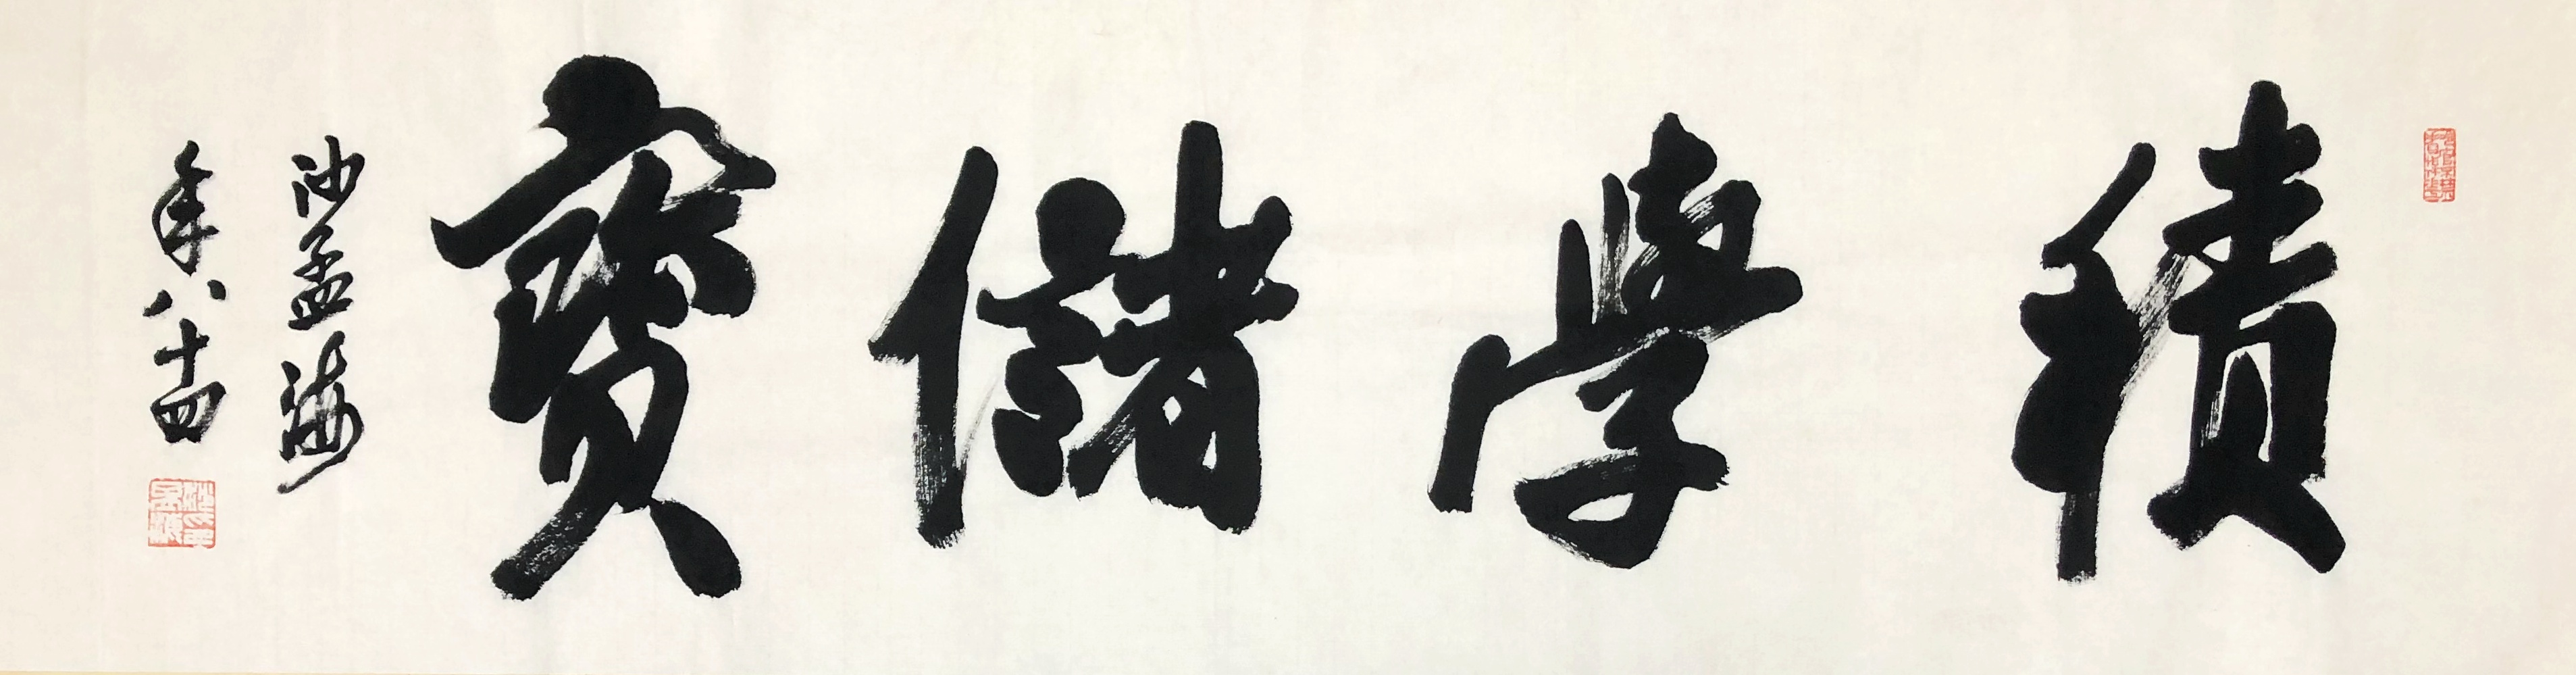 積學儲寶
沙孟海
年八十四